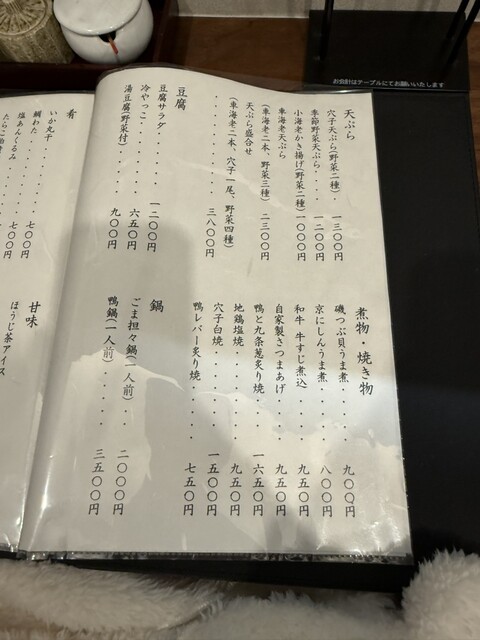 お会計はテーブルにてお願いいたします
天ぷら
穴子天ぷら(野菜二種)・一三〇〇円
季節野菜天ぷら・・・一二〇〇円
小海老かき揚げ(野菜二種)一〇〇〇円
車海老天ぷら
(車海老二本、野菜三種)二三〇〇円
天ぷら盛合せ
(車海老二本、穴子一尾、野菜四種)
・・・・・・・・・三八〇〇円
豆腐
豆腐サラダ・・・・・一二〇〇円
冷やっこ・・・・・・六五〇円
湯豆腐(野菜付)・・・・九〇〇円
煮物・焼き物
磯つぶ貝うま煮・・・・・九〇〇円
京にしんうま煮・・・・・八〇〇円
和牛 牛すじ煮込・・・・九五〇円
自家製さつまあげ・・・・九五〇円
鴨と九条葱炙り焼・・・一六五〇円
地鶏塩焼・・・・・・・九五〇円
穴子白焼・・・・・・一五〇〇円
鴨レバー炙り焼・・・・七五〇円
鍋
ごま担々鍋(一人前)・・二〇〇〇円
鴨鍋(一人前)・・・・・三五〇〇円
肴
いか丸干
鯛わた・・・・・・七〇〇円
塩あんくるみ・・・七〇〇円
甘味
ほうじ茶アイス